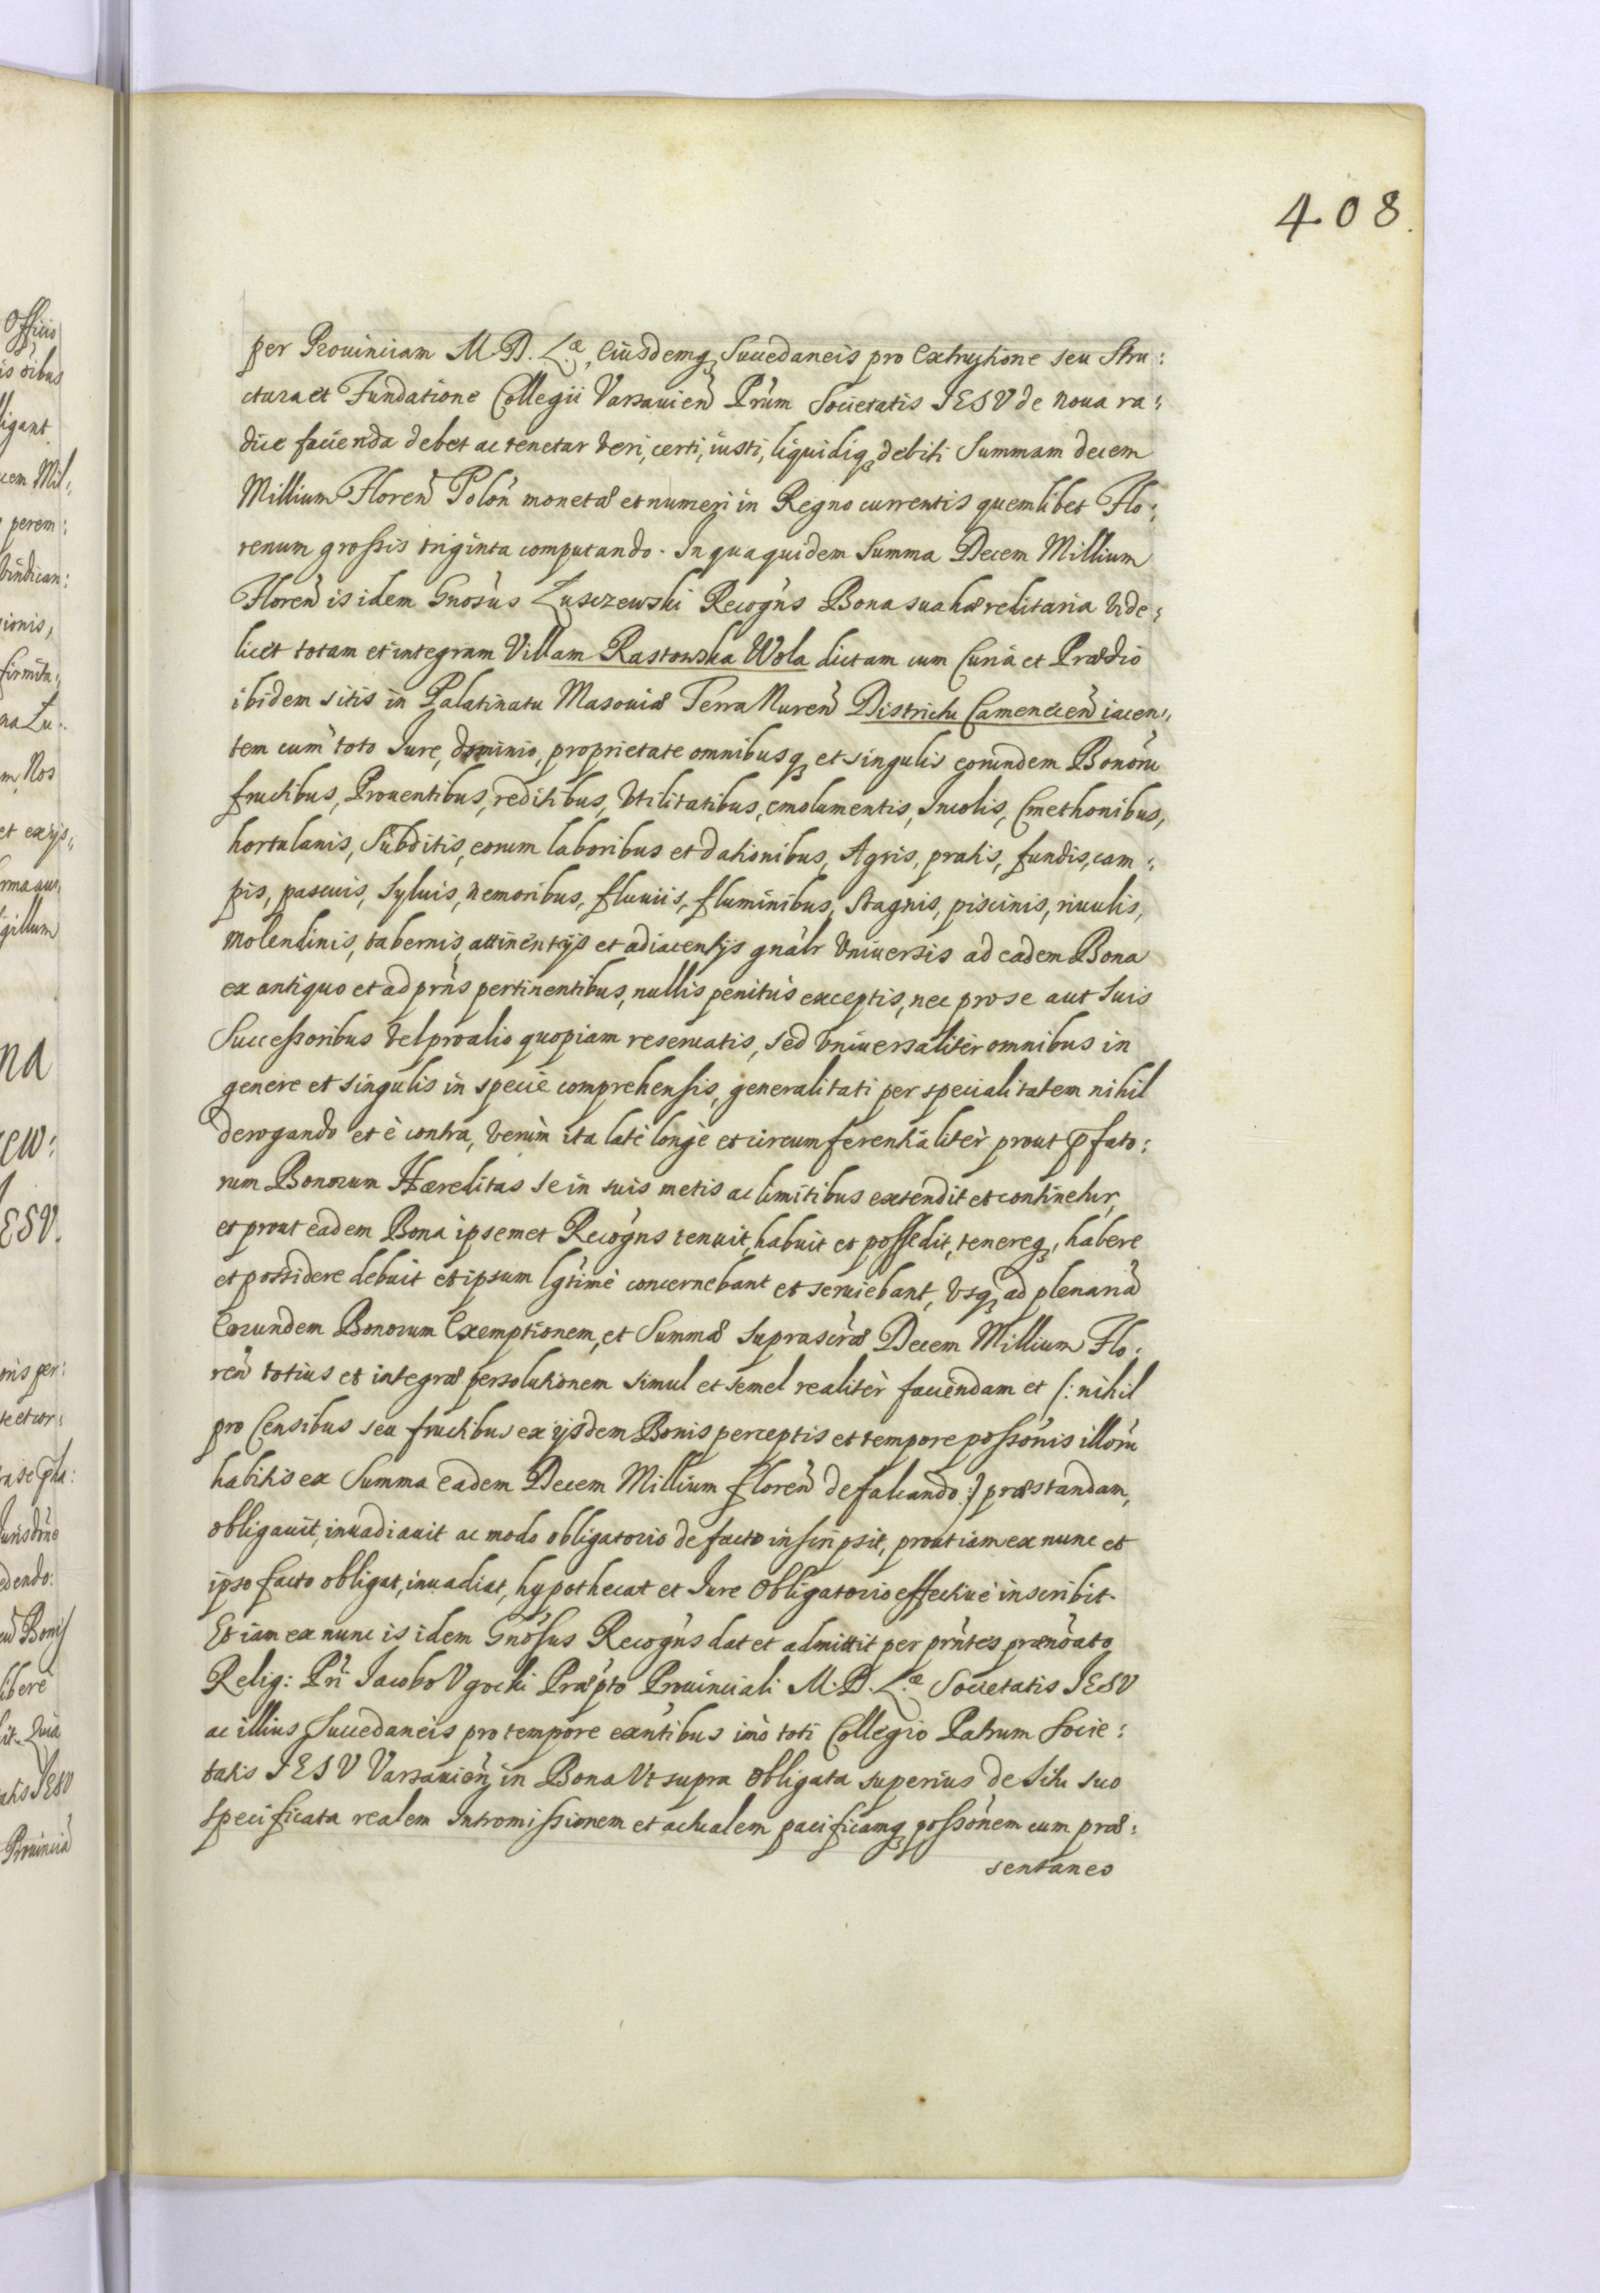 408.
per Prouinciam M. D. L.æ, Eiusdemq₃ Succedaneis pro Extructione seu Stru:
ctura et Fundatione Collegii Varsauien̄ Pr̄um Societatis IESV de noua ra:
dice facienda debet ac tenetur veri, certi, iusti, liquidiq₃ debiti Summam decem
Millium Floren̄ Polon̄ monetæ et numeri in Regno currentis quemlibet Flo:
renum grossis triginta computando. In qua quidem Summa Decem Millium
Floren̄ is idem Gnōsus Zusczewski Recogn̄s Bona sua hæreditaria Vide:
licet totam et integram Villam Rastowska Wola dictam cum Curia et Prædio
ibidem sitis in Palatinatu Masouiæ Terra Nuren̄ Districtu Camenecen̄ iacen:
tem cum toto Iure, dominio, proprietate omnibusq₃ et singulis eorundem Bonorū
fructibus, Prouentibus, reditibus, Vtilitatibus, emolumentis, Incolis, Cmethonibus,
hortulanis, Subditis, eorum laboribus et dationibus, Agris, pratis, fundis, cam:
pis, pascuis, syluis, nemoribus, fluuiis, fluminibus, Stagnis, piscinis, riuulis,
Molendinis, tabernis, attinentijs et adiacentijs gnālr Vniuersis ad eadem Bona
ex antiquo et ad prn̄s pertinentibus, nullis penitùs exceptis, nec pro se aut Suis
Successoribus vel pro alio quopiam reseruatis, sed vniuersalitèr omnibus in
genere et singulis in specie comprehensis, generalitati per specialitatem nihil
derogando et è contra, verùm ita latè longè et circumferentialitèr prout p̄fato:
rum Bonorum Hæreditas se in suis metis ac limitibus extendit et continetur,
et prout eadem Bona ipsemet Recogn̄s tenuit, habuit et possedit, tenereq₃, habere
et possidere debuit et ipsum lgtimè concernebant et seruiebant, Vsq₃ ad plenariā
Eorundem Bonorum Exemptionem, et Summæ suprascr̄æ Decem Millium Flo:
ren̄ totius et integræ persolutionem simul et semel realitèr faciendam et (: nihil
pro Censibus seu fructibus ex ijsdem Bonis perceptis et tempore possōnis illorū
habitis ex Summa eadem Decem Millium floren̄ defalcando :) præstandam,
obligauit, inuadiauit ac modo obligatorio de facto inscripsit, prout iam ex nunc et
ipso facto obligat, inuadiat, hypothecat et Iure Obligatorio effectiuè inscribit.
Et iam ex nunc is idem Gnōsus Recogn̄s dat et admittit per prn̄tes prænōato
Relig: Pri Iacobo Vgocki Præpto Prouinciali M. D. L.æ Societatis IESV
ac illius Succedaneis pro tempore exn̄tibus imò toti Collegio Patrum Socie:
tatis IESV Varsauien̄ in Bona Vt supra Obligata superius de situ suo
specificata realem Intromissionem et actualem pacificamq₃ possōnem cum præ:
sentaneo